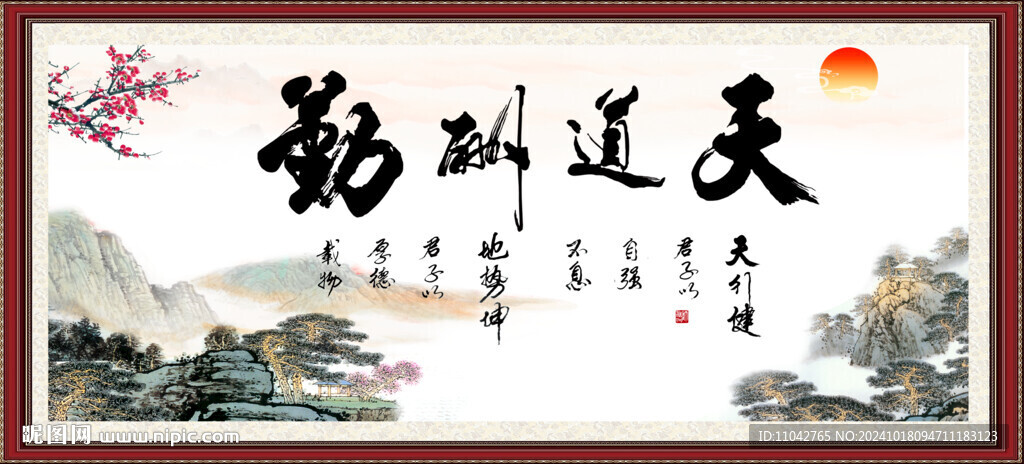 天道酬勤
天行健
君子以
自强
不息
地势坤
君子以
厚德
载物
昵图网 www.nipic.com
ID:11042765 NO:20241018094711183123